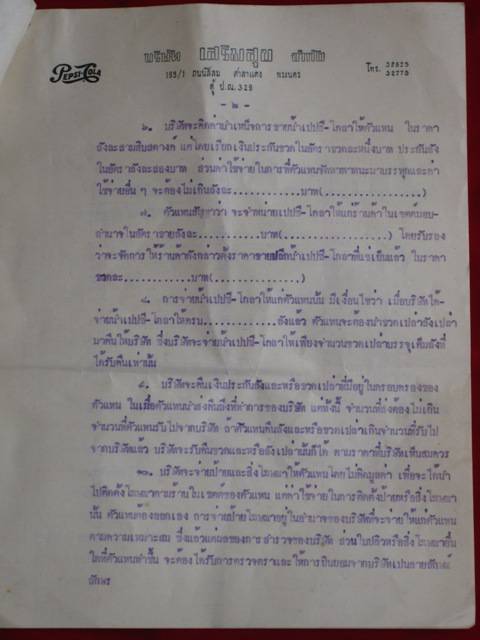 บริษัท เสริมสุข จำกัด
PEPSI-COLA
193/1 ถนนสีลม ศาลาแดง พระนคร
ตู้ ป.ณ. 329
โทร.
- ๒ -
๖. บริษัทจะคิดค่าน้ำเหนือการขายน้ำเปปซี่-โคลาให้ตัวแทน ในราคา
ลังละสามสิบสตางค์ แต่โดยเรียกเงินประกันขวดในอัตราขวดละหนึ่งบาท ประกันลัง
ในอัตราลังละสองบาท ส่วนค่าใช้จ่ายในการที่ตัวแทนจัดหาพาหนะมาบรรทุกและค่า
ใช้จ่ายอื่น ๆ จะต้องไม่เกินลังละ............บาท(................)
๗. ตัวแทนสัญญาว่า จะจำหน่ายเปปซี่-โคลาให้แก่ร้านค้าในเขตต์มอบ-
อำนาจในอัตราขายลังละ..........บาท(................) โดยรับรอง
ว่าจะจัดการให้ร้านค้าดังกล่าวตั้งราคาขายปลีกน้ำเปปซี่-โคลาที่แช่เย็นแล้ว ในราคา
ขวดละ...........บาท(..............)
๘. การจ่ายน้ำเปปซี่-โคลาให้แก่ตัวแทนนั้น มีเงื่อนไขว่า เมื่อบริษัทได้-
จ่ายน้ำเปปซี่-โคลาให้ครบ............ลังแล้ว ตัวแทนจะต้องนำขวดเปล่าลังเปล่า
มาคืนให้บริษัท ซึ่งบริษัทจะจ่ายน้ำเปปซี่-โคลาให้เพียงจำนวนขวดเปล่าบรรจุเต็มลังที่
ได้รับคืนเท่านั้น
๙. บริษัทจะคืนเงินประกันลังและหรือขวดเปล่าที่มีอยู่ในครอบครองของ
ตัวแทน ในเมื่อตัวแทนนำส่งคืนถึงที่ทำการของบริษัท แต่ทั้งนี้ จำนวนที่ส่งต้องไม่เกิน
จำนวนที่ตัวแทนรับไปจากบริษัท ถ้าตัวแทนคืนลังและหรือขวดเปล่าเกินจำนวนที่รับไป
จากบริษัทแล้ว บริษัทจะรับคืนขวดและหรือลังเปล่านั้นก็ได้ ตามราคาที่บริษัทเห็นสมควร
๑๐. บริษัทจะจ่ายป้ายและสิ่งโฆษณาให้ตัวแทนโดยไม่คิดมูลค่า เพื่อจะได้นำ
ไปติดตั้งโฆษณาตามร้านในเขตต์ของตัวแทน แต่ค่าใช้จ่ายในการติดตั้งป้ายหรือสิ่งโฆษณา
นั้น ตัวแทนต้องออกเอง การจ่ายป้ายโฆษณาอยู่ในอำนาจของบริษัทที่จะจ่ายให้แก่ตัวแทน
ตามความเหมาะสม ซึ่งแล้วแต่ผลของการสำรวจของบริษัท ส่วนใบปลิวหรือสิ่งโฆษณาอื่น
ใดที่ตัวแทนทำขึ้น จะต้องได้รับการตรวจตราและให้การยินยอมจากบริษัทเป็นลายลักษณ์
อักษร